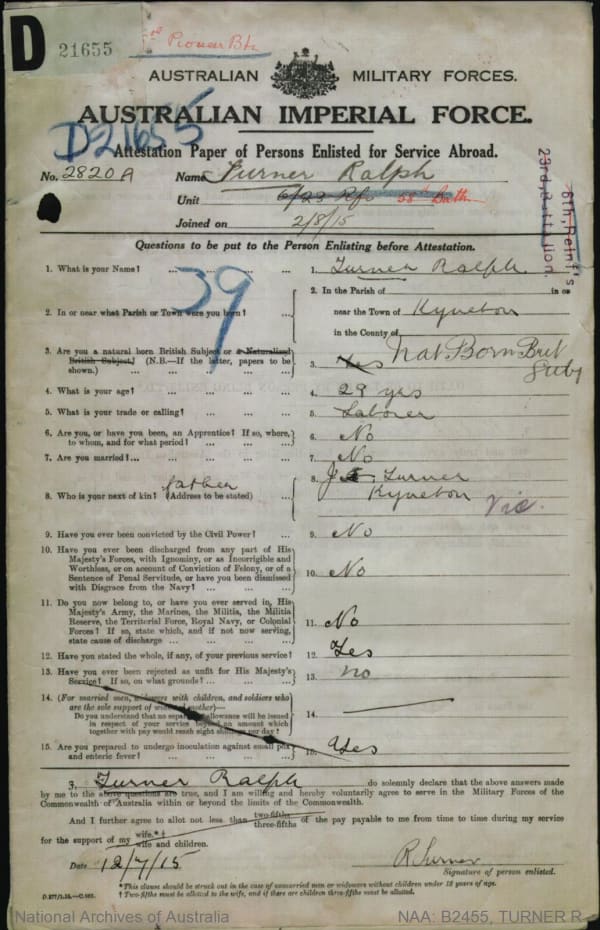 D 21655
Pioneer Btn
AUSTRALIAN MILITARY FORCES.
AUSTRALIAN IMPERIAL FORCE.
D21655
Attestation Paper of Persons Enlisted for Service Abroad.
No. 2820A Name Turner Ralph
Unit 6/23 Rfs 58th Battn
Joined on 2/8/15
23rd Battalion
6th Reinf's
Questions to be put to the Person Enlisting before Attestation.
1. What is your Name? ... ... ... ... 1. Turner Ralph
39
2. In or near what Parish or Town were you born? ... 2. In the Parish of in or
near the Town of Kyneton
in the County of
3. Are you a natural born British Subject or a Naturalised
British Subject? (N.B.—If the latter, papers to be
shown.) ... ... ... ... 3. Yes Nat. Born Brit
Subj
4. What is your age? ... ... ... ... 4. 29 yrs
5. What is your trade or calling? ... ... ... 5. Laborer
6. Are you, or have you been, an Apprentice? If so, where,
to whom, and for what period? ... ... ... 6. No
7. Are you married?... ... ... ... 7. No
father
8. Who is your next of kin? (Address to be stated) ... 8. J Turner
Kyneton Vic.
9. Have you ever been convicted by the Civil Power? ... 9. No
10. Have you ever been discharged from any part of His
Majesty's Forces, with Ignominy, or as Incorrigible and
Worthless, or on account of Conviction of Felony, or of a
Sentence of Penal Servitude, or have you been dismissed
with Disgrace from the Navy? ... ... 10. No
11. Do you now belong to, or have you ever served in, His
Majesty's Army, the Marines, the Militia, the Militia
Reserve, the Territorial Force, Royal Navy, or Colonial
Forces? If so, state which, and if not now serving,
state cause of discharge ... ... ... 11. No
12. Have you stated the whole, if any, of your previous service? 12. Yes
13. Have you ever been rejected as unfit for His Majesty's
Service? If so, on what grounds? ... ... 13. no
14. (For married men, widowers with children, and soldiers who
are the sole support of widowed mother)—
Do you understand that no separation allowance will be issued
in respect of your service beyond an amount which
together with pay would reach eight shillings per day? 14.
15. Are you prepared to undergo inoculation against small pox
and enteric fever? ... ... ... 15. Yes
3. Turner Ralph do solemnly declare that the above answers made
by me to the above questions are true, and I am willing and hereby voluntarily agree to serve in the Military Forces of the
Commonwealth of Australia within or beyond the limits of the Commonwealth.
And I further agree to allot not less than two-fifths of the pay payable to me from time to time during my service
three-fifths
for the support of my wife.*†
wife and children.
Date 12/7/15 R Turner
Signature of person enlisted.
*This clause should be struck out in the case of unmarried men or widowers without children under 18 years of age.
† Two-fifths must be allotted to the wife, and if there are children three-fifths must be allotted.
National Archives of Australia NAA: B2455, TURNER R